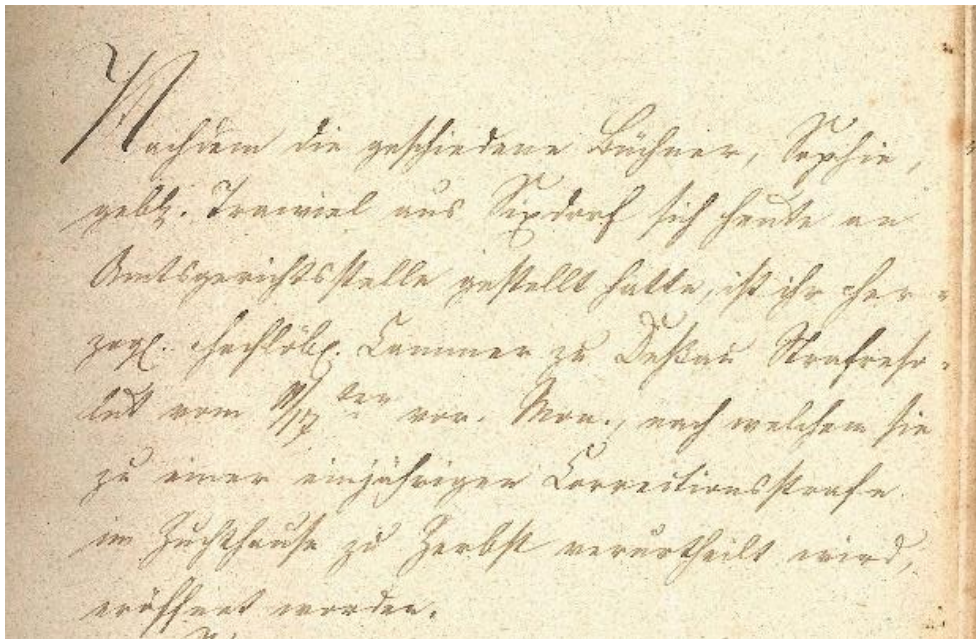 Nachdem die geschiedene Büchner, Sophie,
gebh. Trawiel aus Sixdorf sich heute an
Amtsgerichtsstelle gestellt hatte, ist ihr Her-
zogl. Hochlöbl. Cammer zu Deßau Strafreso-
lut vom ten vor. Mon., nach welchem sie
zu einer einjährigen Correctionsstrafe
im Zuchthause zu Zerbst verurtheilt wird,
eröffnet worden.